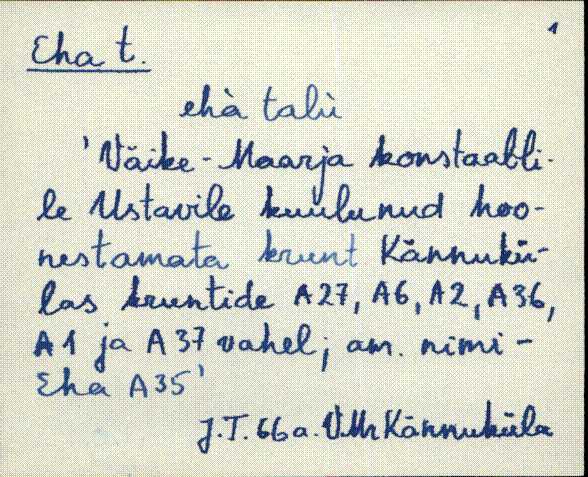 1
Eha t.
ehà talù
'Väike-Maarja konstaabli-
le Ustavile kuulunud hoo-
nestamata krunt Kännukü-
las kruntide A27, A6, A2, A36,
A1 ja A37 vahel; am. nimi -
Eha A35'
J.T. 66 a. V.Mr Kännuküla